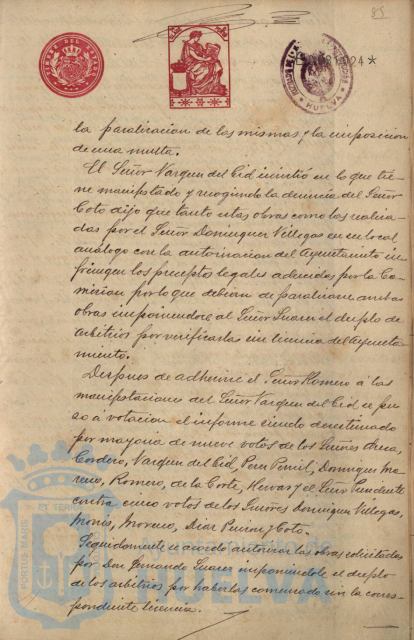 85
TIMBRE DEL ESTADO
HUELVA
la paralizacion de las mismas y la imposicion
de una multa.
El Señor Vazquez del Cid insistió en lo que tie-
ne manifestado y recogiendo la denuncia del Señor
Coto dijo que tanto estas obras como las realiza-
das por el Señor Dominguez Villegas en su local
análogo con la autorizacion del Ayuntamiento in-
fringen los preceptos legales aducidos por la Co-
mision por lo que debian de paralizarse ambas
obras imponiendose al Señor Suarez el duplo de
arbitrios por verificarlas sin licencia del Ayunta-
miento.
Despues de adherirse el Señor Romero á las
manifestaciones del Señor Vazquez del Cid se pu-
so á votacion el informe siendo desestimado
por mayoria de nueve votos de los Señores
Cordero, Vazquez del Cid, Perez Dominguez Ma-
Romero, de la Corte, y el Señor Presidente
contra cinco votos de los Señores Dominguez Villegas,
Moreno, Diaz y Coto.
Seguidamente se acordó autorizar las obras solicitadas
por Don Fernando Suarez imponiendole el duplo
de los arbitrios por haberlas comenzado sin la corres-
pondiente licencia.
PORTUS MARIS ET TERRÆ
Ayuntamiento de
HUELVA